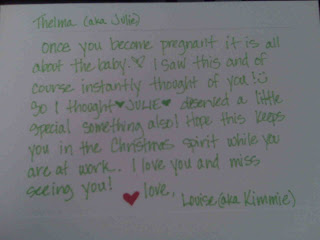 Thelma (aka Julie)
Once you become pregnant it is all
about the baby.♡ I saw this and of
course instantly thought of you!☺
So I thought ♥JULIE♥ deserved a little
special something also! Hope this keeps
you in the Christmas spirit while you
are at work.. I love you and miss
seeing you!
♥ love,
Louise (aka Kimmie)